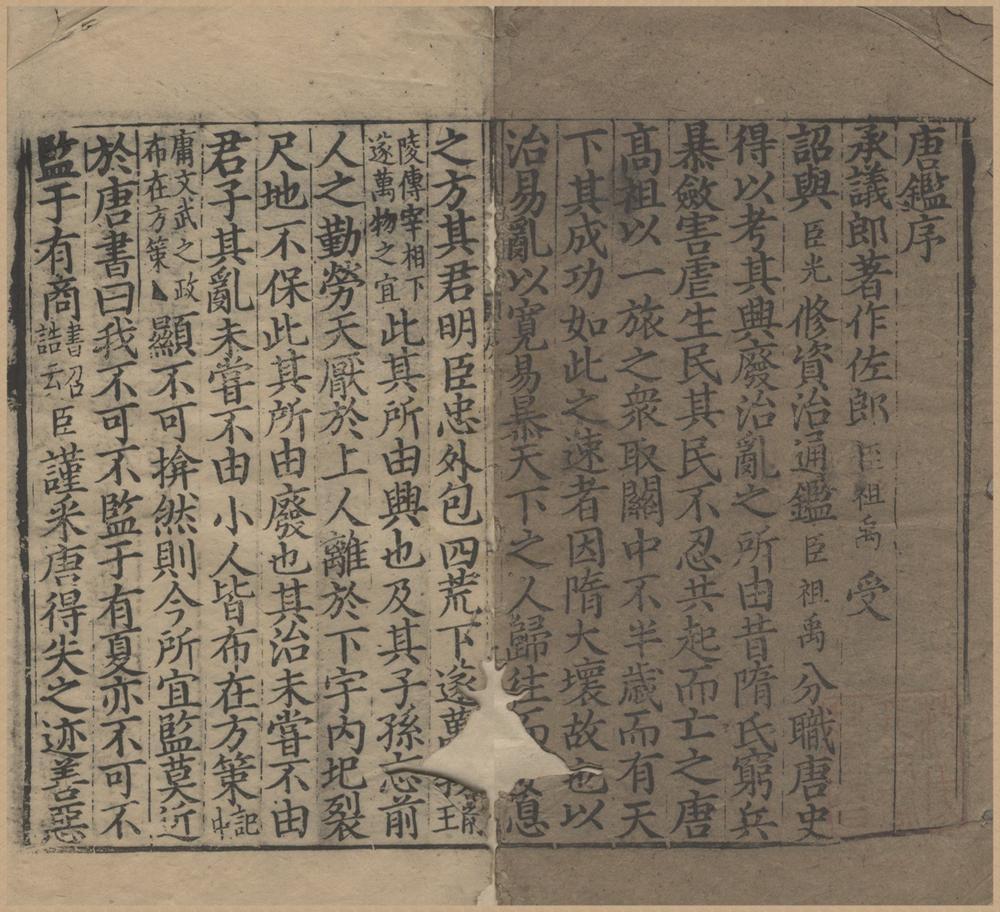 唐鑑序
承議郎著作佐郎臣祖禹受
詔與臣光修資治通鑑臣祖禹分職唐史
得以考其興廢治亂之所由昔隋氏窮兵
暴斂害虐生民其民不忍共起而亡之唐
髙祖以一旅之衆取關中不半歲而有天
下其成功如此之速者因隋大壞故也以
治易亂以寬易暴天下之人歸往而
之方其君明臣忠外包四荒下遂萬
王
陵傳宰相下
遂萬物之宜
此其所由興也及其子孫忘前
人之勤勞天厭於上人離於下宇内圯裂
尺地不保此其所由廢也其治未嘗不由
君子其亂未嘗不由小人皆布在方策
記中
庸文武之政
布在方策
顯不可揜然則今所宜監莫近
於唐書曰我不可不監于有夏亦不可不
監于有商
書召
誥云
臣謹采唐得失之迹善惡